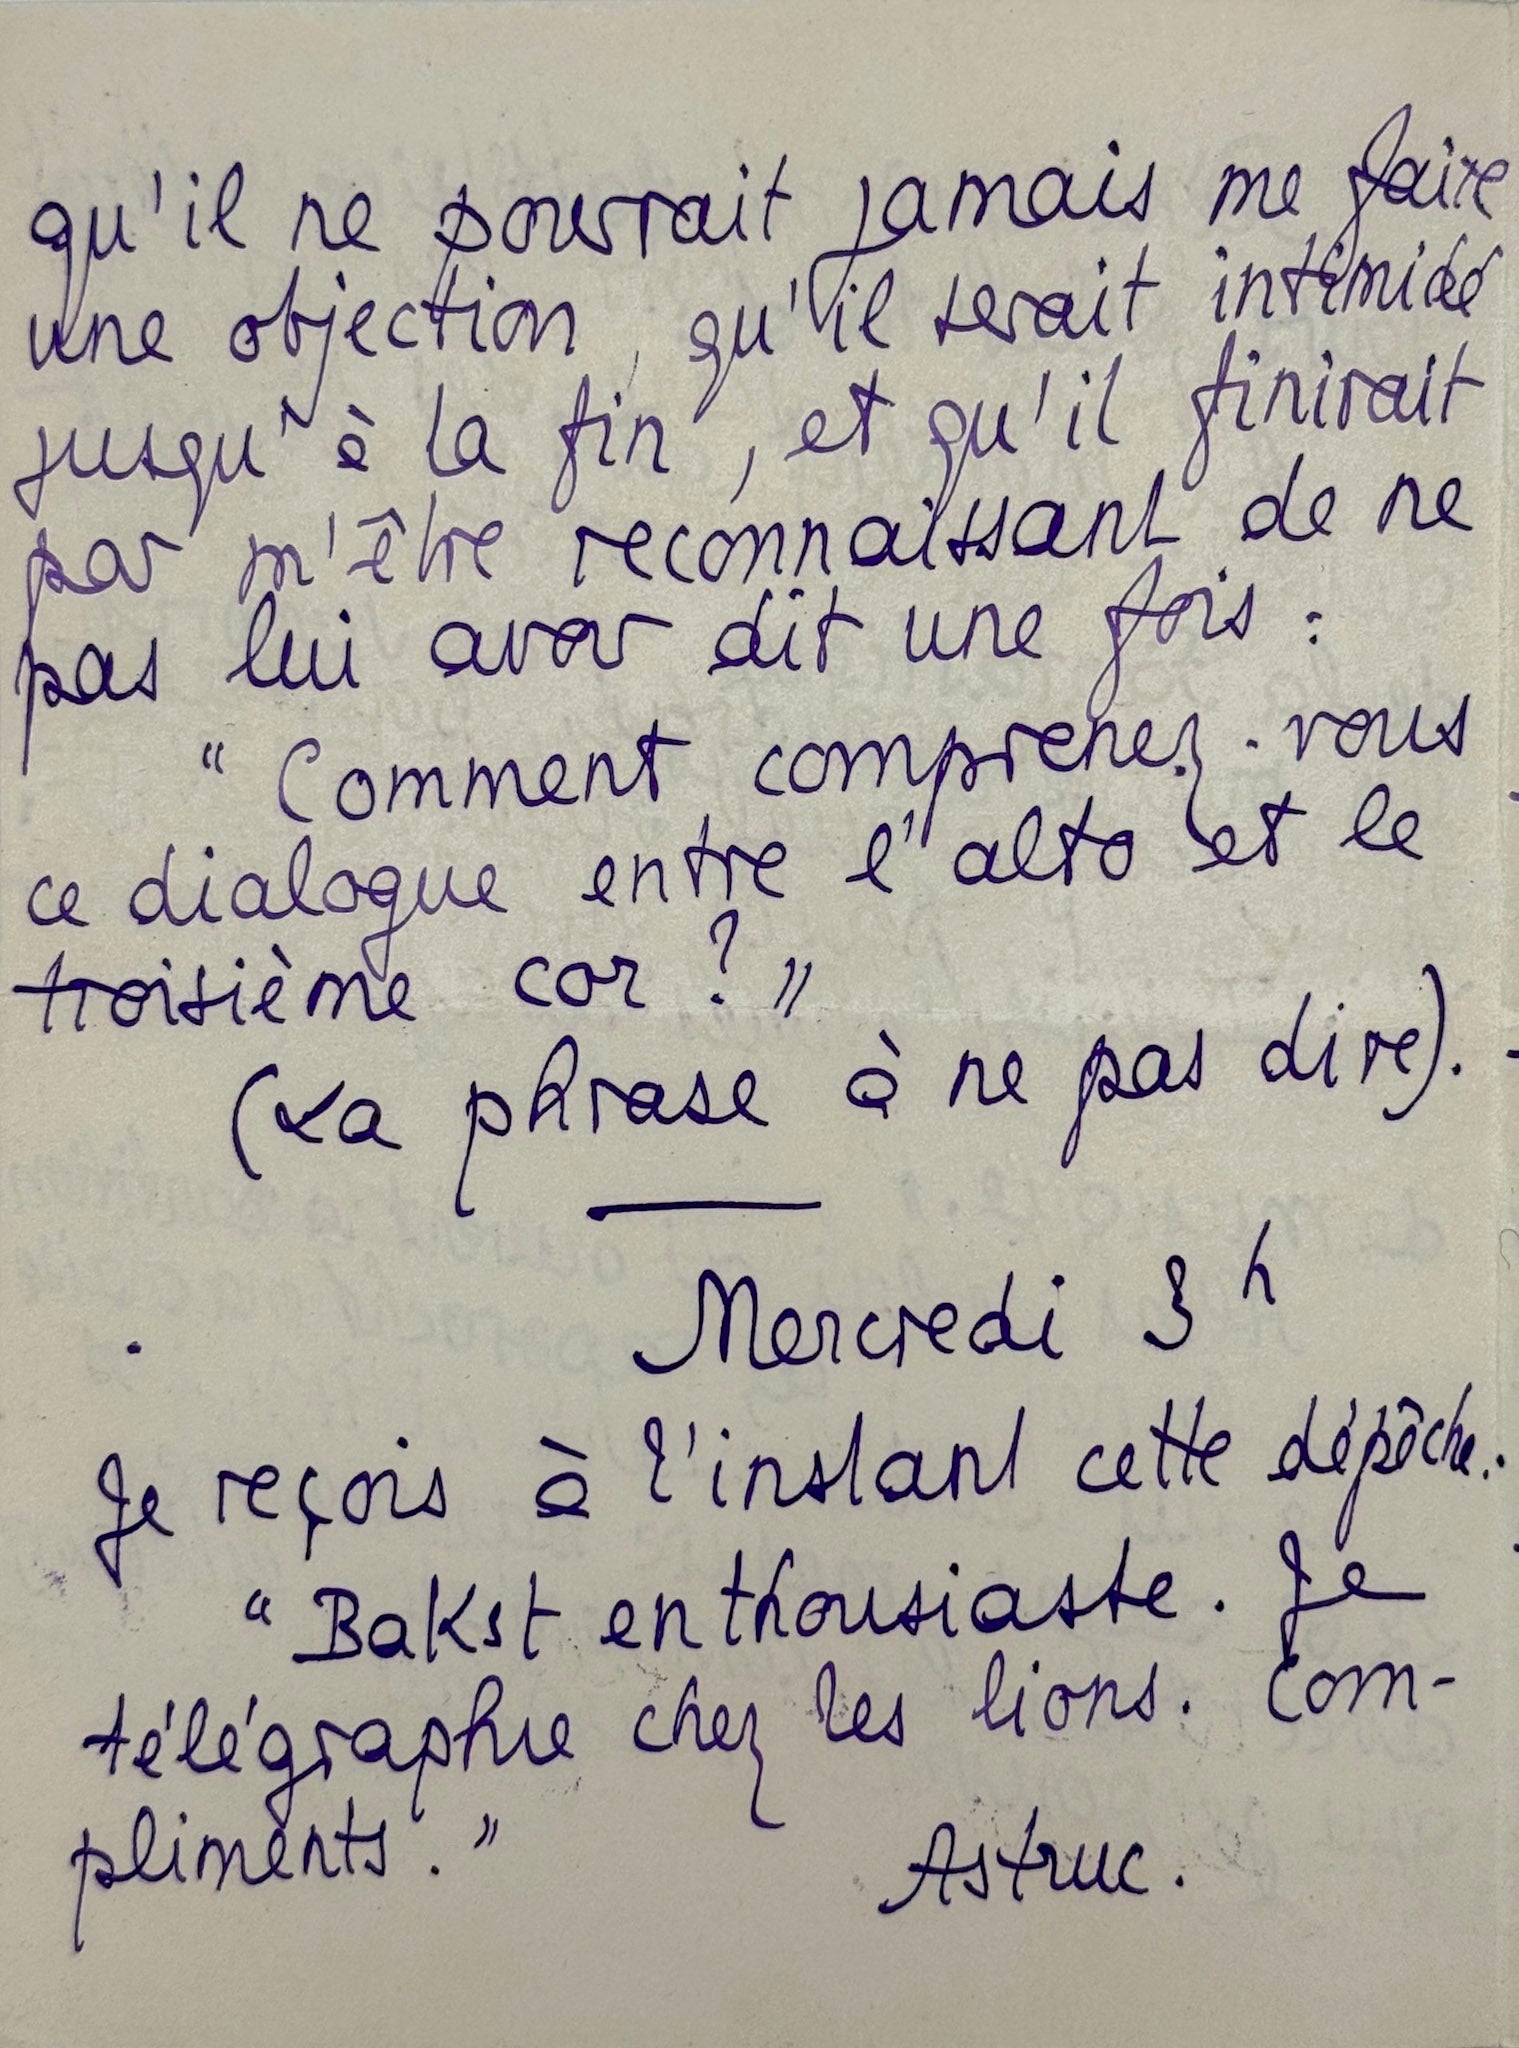 qu'il ne pourrait jamais me faire
une objection, qu'il serait intimidé
jusqu'à la fin, et qu'il finirait
par m'être reconnaissant de ne
pas lui avoir dit une fois :
“ Comment comprenez-vous
ce dialogue entre l'alto et le
troisième cor ? ”
(La phrase à ne pas dire).
Mercredi 3h
Je reçois à l'instant cette dépêche.
“ Bakst enthousiaste. Je
télégraphie chez les lions. Com-
pliments. ”
Astruc.